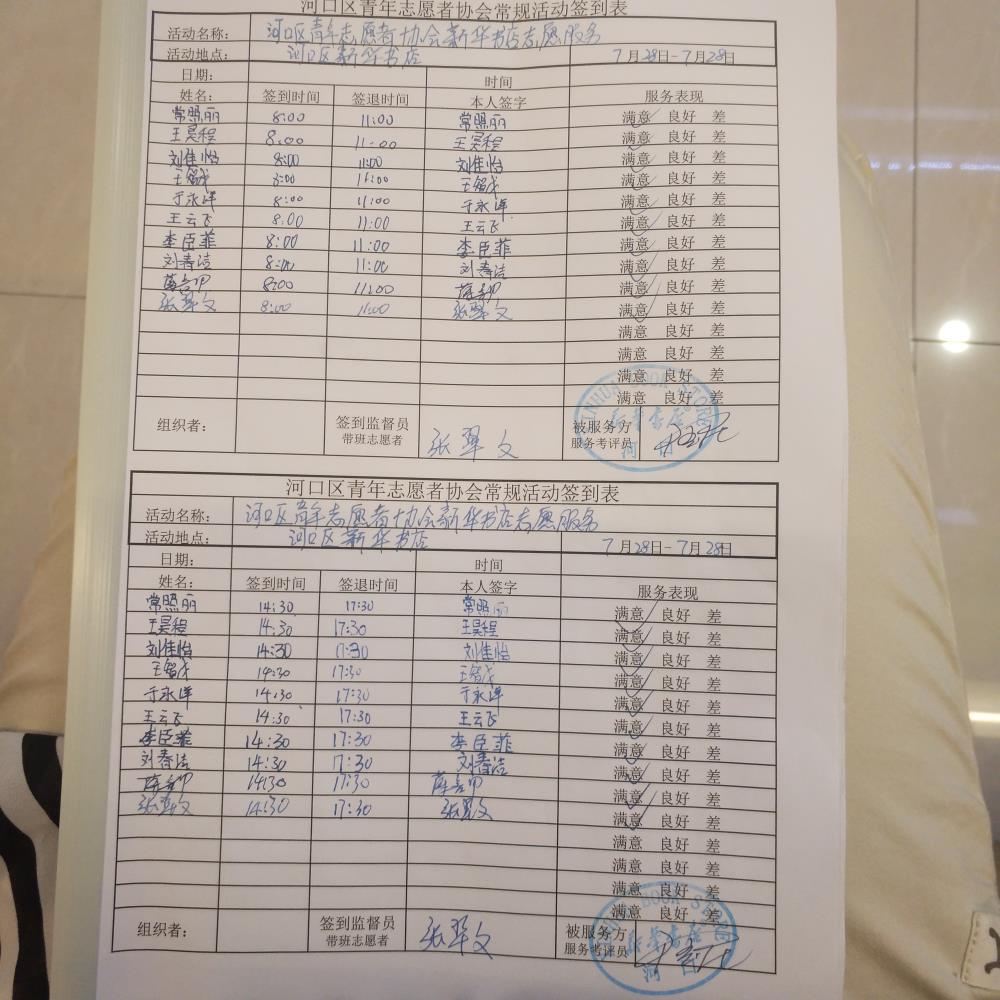 河口区青年志愿者协会常规活动签到表
活动名称： 河口区青年志愿者协会新华书店志愿服务
活动地点： 河口区新华书店 7月28日-7月28日
日期： 时间
姓名： 签到时间 签退时间 本人签字 服务表现
常照丽 8:00 11:00 常照丽 满意 良好 差
王昊程 8:00 11:00 王昊程 满意 良好 差
刘佳怡 8:00 11:00 刘佳怡 满意 良好 差
8:00 11:00 满意 良好 差
于永洋 8:00 11:00 于永洋 满意 良好 差
王云飞 8:00 11:00 王云飞 满意 良好 差
李臣菲 8:00 11:00 李臣菲 满意 良好 差
刘春洁 8:00 11:00 刘春洁 满意 良好 差
8:00 11:00 满意 良好 差
张翠文 8:00 11:00 张翠文 满意 良好 差
满意 良好 差
满意 良好 差
满意 良好 差
满意 良好 差
组织者： 签到监督员 带班志愿者 张翠文 被服务方 服务考评员
河口区青年志愿者协会常规活动签到表
活动名称： 河口区青年志愿者协会新华书店志愿服务
活动地点： 河口区新华书店 7月28日-7月28日
日期： 时间
姓名： 签到时间 签退时间 本人签字 服务表现
常照丽 14:30 17:30 常照丽 满意 良好 差
王昊程 14:30 17:30 王昊程 满意 良好 差
刘佳怡 14:30 17:30 刘佳怡 满意 良好 差
14:30 17:30 满意 良好 差
于永洋 14:30 17:30 于永洋 满意 良好 差
王云飞 14:30 17:30 王云飞 满意 良好 差
李臣菲 14:30 17:30 李臣菲 满意 良好 差
刘春洁 14:30 17:30 刘春洁 满意 良好 差
14:30 17:30 满意 良好 差
张翠文 14:30 17:30 张翠文 满意 良好 差
满意 良好 差
满意 良好 差
满意 良好 差
满意 良好 差
组织者： 签到监督员 带班志愿者 张翠文 被服务方 服务考评员